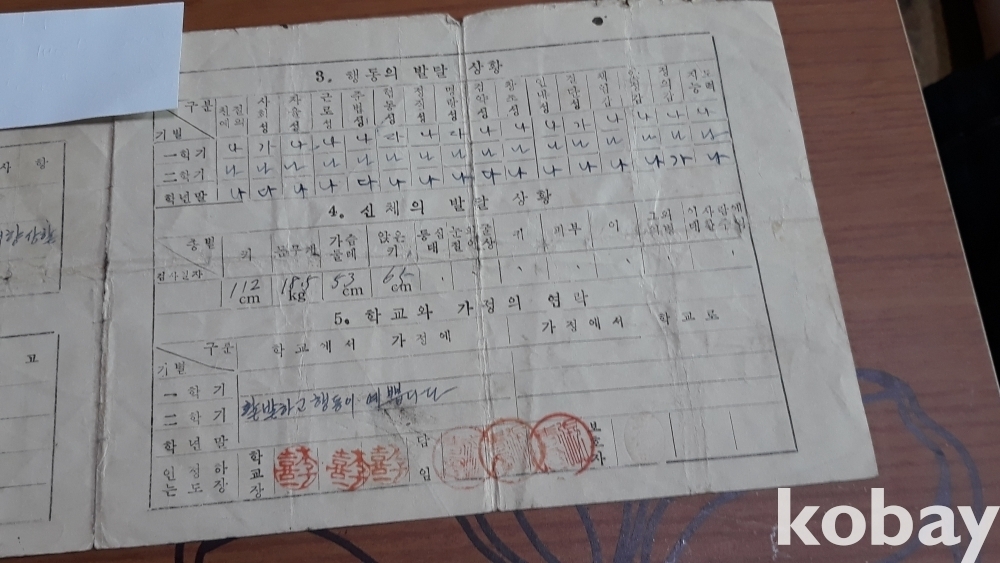 3. 행동의 발달 상황
구분 친절예의 사회성 자율성 근로성 준법성 협동성 정직성 명랑성 인내성 책임감 정의감 지도능력
기별
一학기 나 가 나 나 나 다 나 다 나 나 나 가 나 나 나 나
二학기 나 나 나 나 나 나 나 나 나 나 나 나 나 나 나 나
학년말 나 다 나 나 다 나 나 나 다 나 나 나 나 나 가 나
4. 신체의 발달 상황
종별 키 몸무게 가슴둘레 앉은키 귀 피부 이 그외
검사일자
112 cm 18.5 kg 53 cm 65 cm
5. 학교와 가정의 연락
구분 학교에서 가정에 가정에서 학교로
기별
一학기
二학기 활발하고 행동이 예쁩니다
학년말
인정하는도장 학교장 담임 보호자
사 항
고
kobay